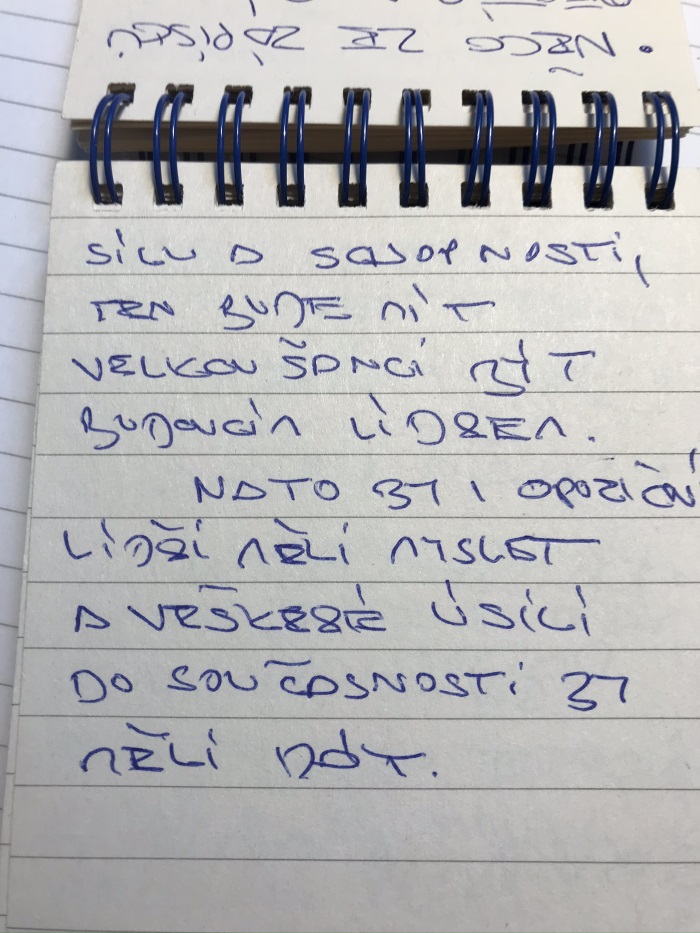 NĚCO ZE ZÁPISKŮ.
SÍLU A SCHOPNOSTI,
TEN BUDE MÍT
VELKOU ŠANCI BÝT
BUDOUCÍM LÍDREM.
NATO BY I OPOZIČNÍ
LÍDŘI MĚLI MYSLET
A VEŠKERÉ ÚSILÍ
DO SOUČASNOSTI BY
MĚLI DÁT.